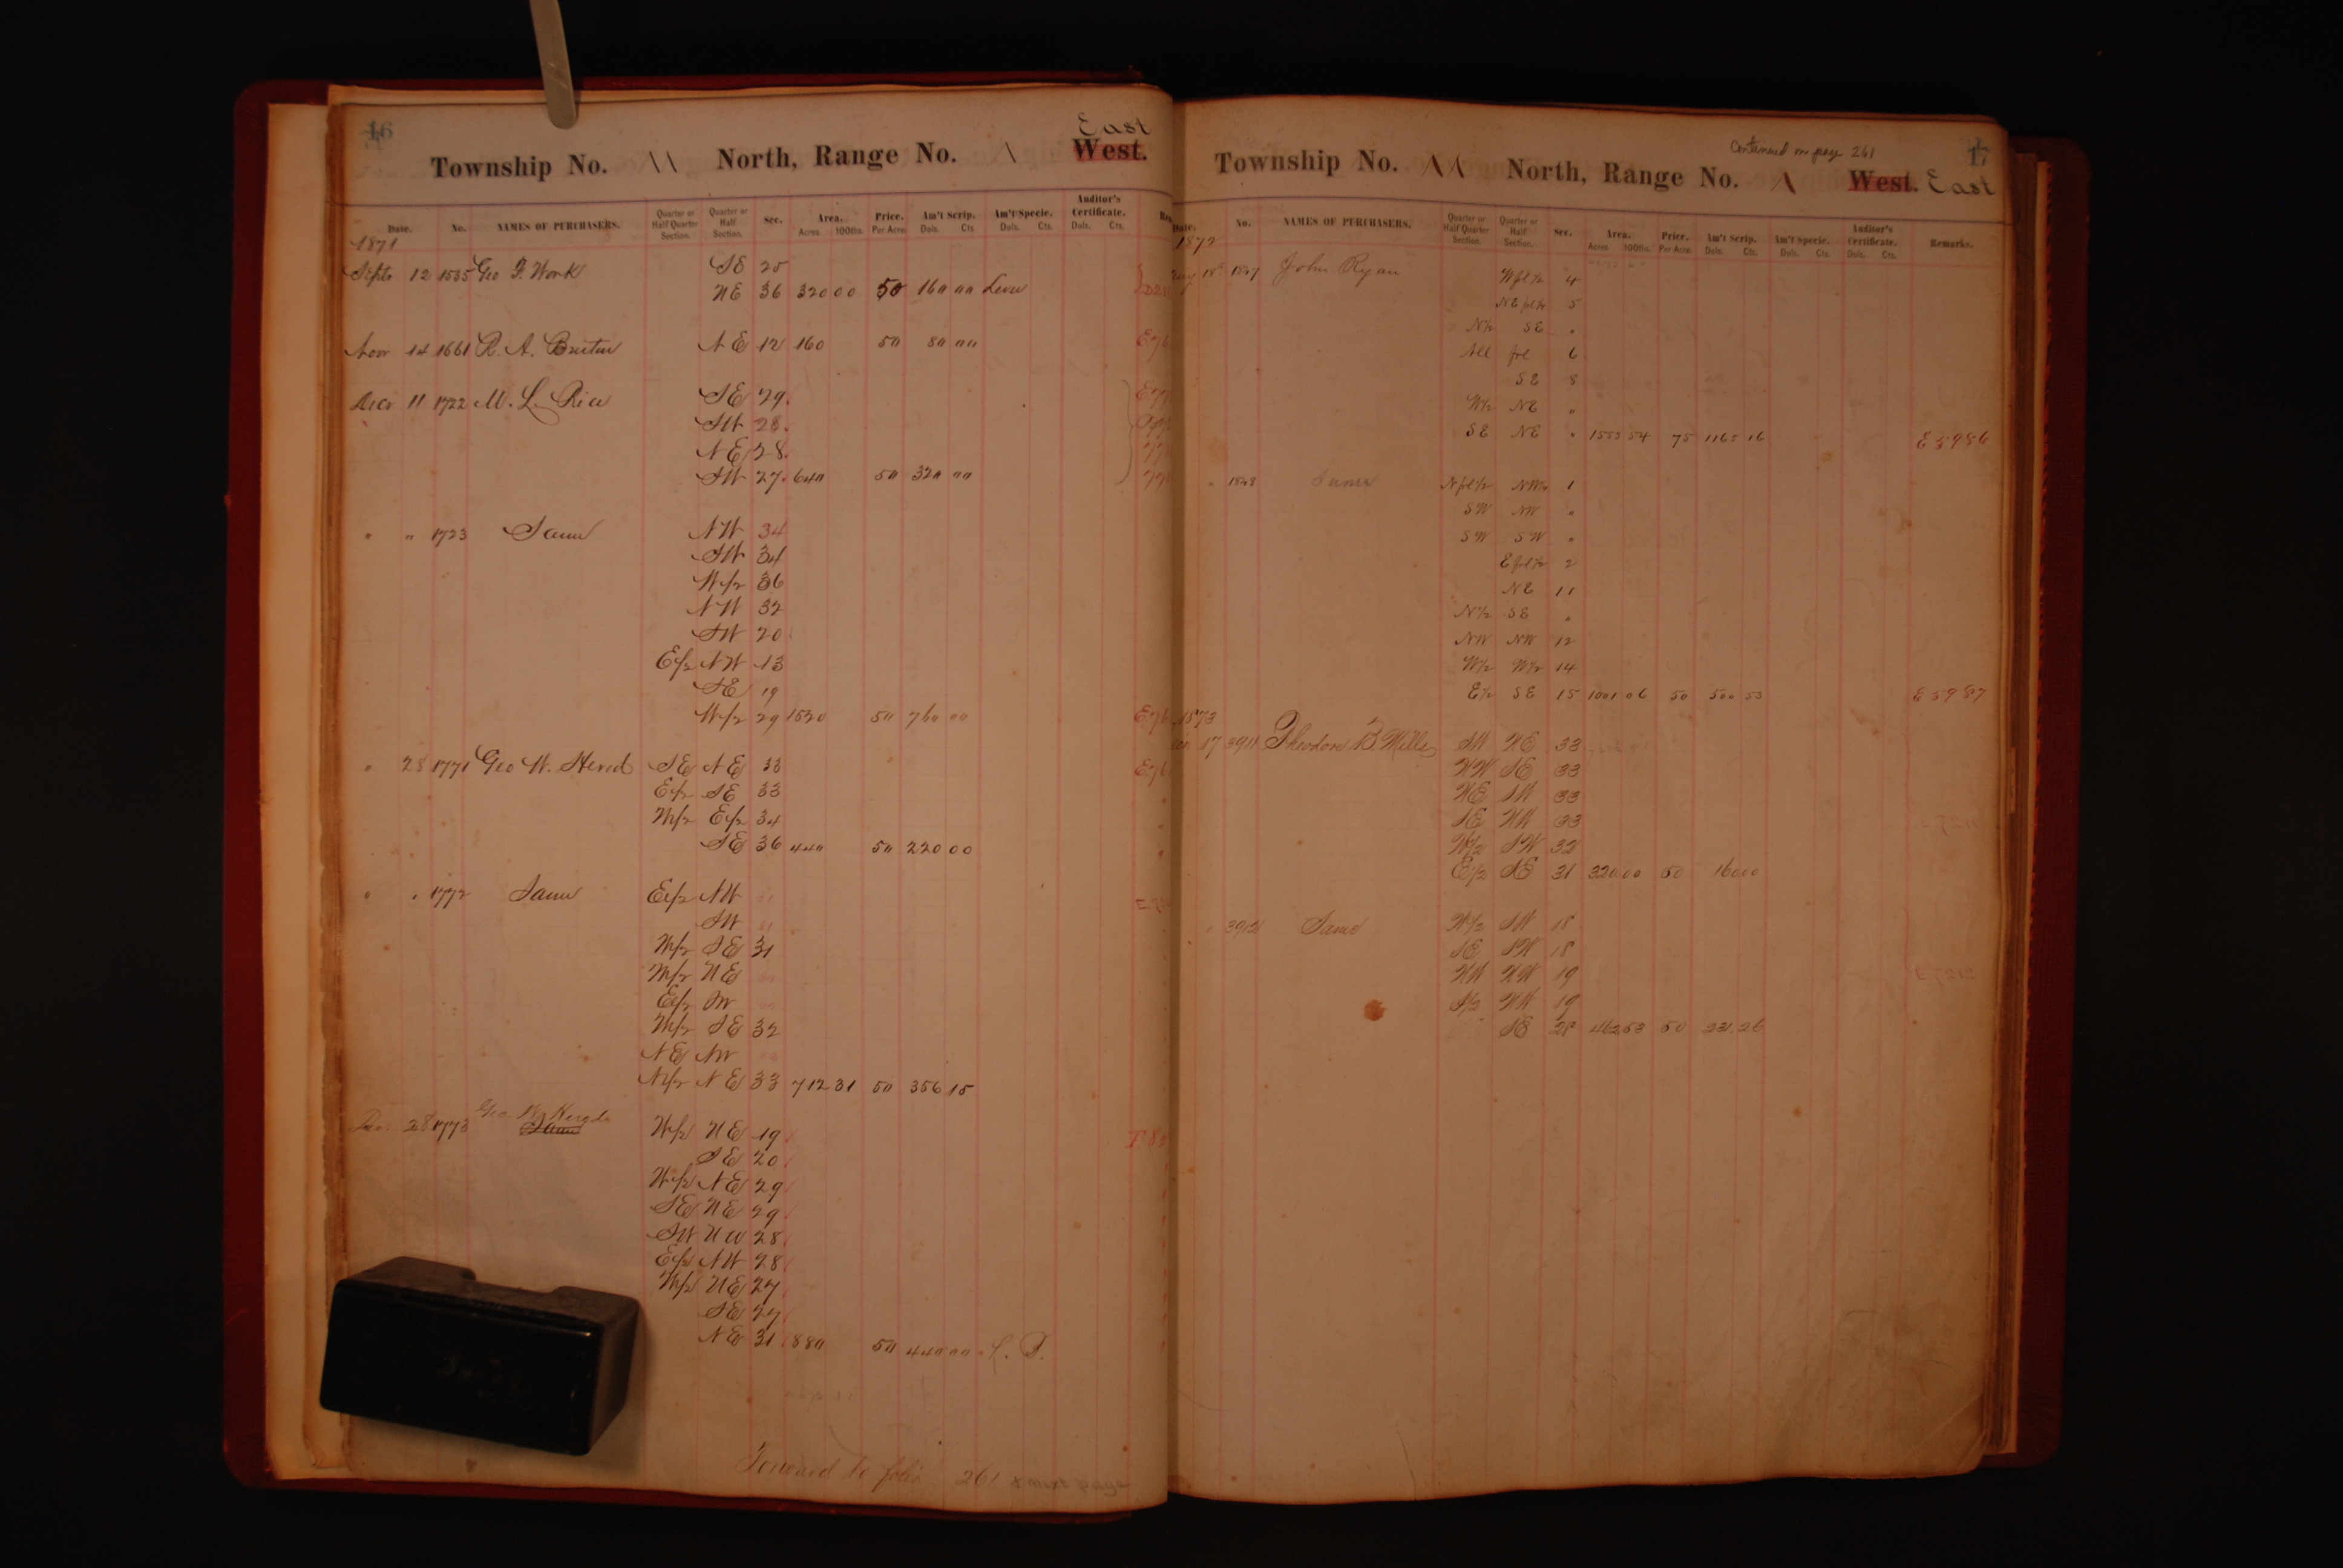 16
East
Township No. 11 North, Range No. 1 West.
Date. No. NAMES OF PURCHASERS. Quarter or Half Quarter Section. Quarter or Half Section. Sec. Area. Acres 100ths. Price. Per Acre. Am't Scrip. Dols. Cts. Am't Specie. Dols. Cts. Auditor's Certificate. Dols. Cts.
1871
Sept 12 1535 Geo F. Work SE 25
NE 36 320 00 50 160 00
Nov 14 1661 R. A. NE 12 160 50 80 00
Decr 11 1722 M. L. Rice SE 29
SW 28
NE 28
SW 27 640 50 320 00
" " 1723 Same NW 34
SW 34
W/2 36
NW 32
SW 20
E/2 NW 13
SE 19
W/2 29 1520 50 760 00
" 28 1771 Geo W. SE NE 33
E/2 SE 33
W/2 E/2 34
SE 36 440 50 220 00
" " 1772 Same E/2 NW
SW
W/2 SE 31
W/2 NE
E/2 SW
W/2 SE 32
NE NW
N/2 NE 33 712 31 50 356 15
28 1773 Geo W. Same W/2 NE 19
SE 20
W/2 NE 29
SE NE 29
SW NW 28
E/2 NW 28
W/2 NE 27
SE 27
NE 31 880 50 440 00
Forward to folio 261 & next page
Continued on page 261
17
Township No. 11 North, Range No. 1 West. East
Date. No. NAMES OF PURCHASERS. Quarter or Half Quarter Section. Quarter or Half Section. Sec. Area. Acres 100ths. Price. Per Acre. Am't Scrip. Dols. Cts. Am't Specie. Dols. Cts. Auditor's Certificate. Dols. Cts. Remarks.
1872
John Ryan W frl 1/2 4
NE frl 1/4 5
N1/2 SE "
All frl 6
SE 8
W1/2 NE "
SE NE " 1553 54 75 1165 16 E5986
" Same N frl 1/2 NW 1
SW NW "
SW SW "
E frl 1/2 2
NE 11
N1/2 SE "
NW NW 12
W1/2 W1/2 14
E1/2 SE 15 1001 06 50 500 53 E5987
1873
17 3911 Theodore B. Mills SW NE 33
NW SE 33
NE SW 33
SE NW 33
W1/2 SW 32
E1/2 SE 31 320 00 50 160 00
" 3912 Same W1/2 SW 18
SE SW 18
NW NW 19
S1/2 NW 19
SE 28 462 53 50 231 26